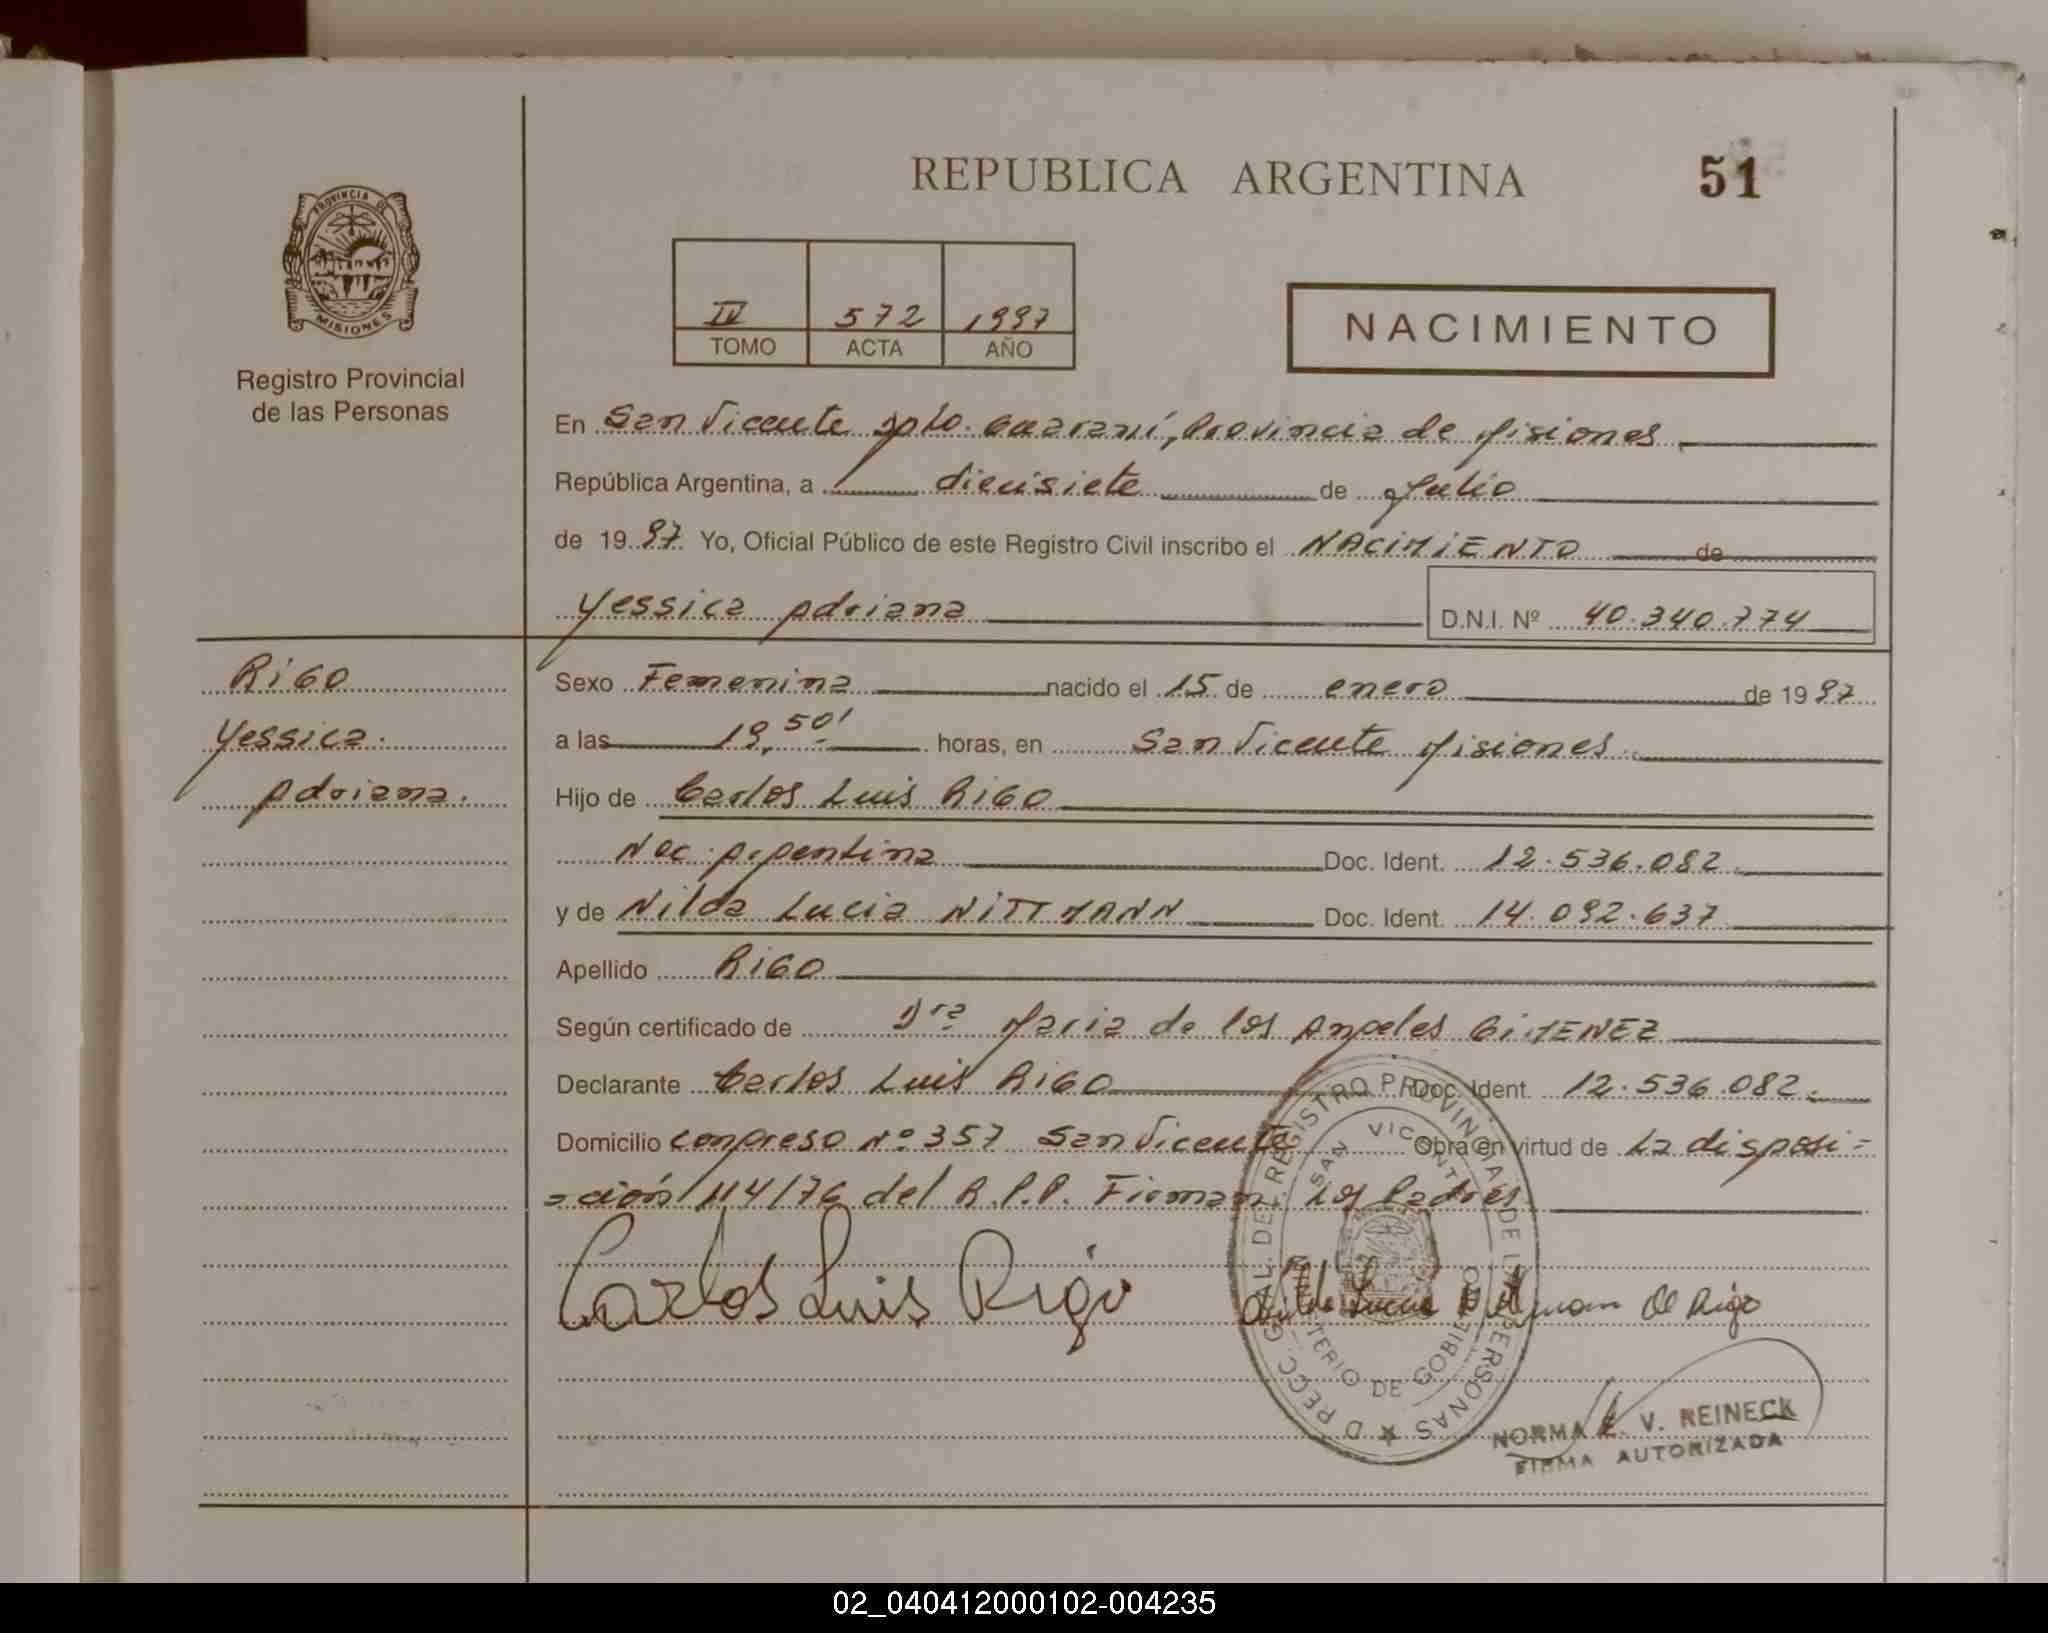 REPUBLICA ARGENTINA
51
PROVINCIA DE
MISIONES
Registro Provincial
de las Personas
IV 572 1997
TOMO ACTA AÑO
NACIMIENTO
En San Vicente Dpto. Guaraní, Provincia de Misiones
República Argentina, a diecisiete de Julio
de 1997 Yo, Oficial Público de este Registro Civil inscribo el NACIMIENTO de
Yessica Adriana D.N.I. Nº 40.340.774
Rigo
Yessica.
Adriana.
Sexo Femenina nacido el 15 de enero de 1997
a las 19,50' horas, en San Vicente Misiones
Hijo de Carlos Luis RIGO
Nac. Argentina Doc. Ident. 12.536.082
y de Nilda Lucia NITTMANN Doc. Ident. 14.092.637
Apellido RIGO
Según certificado de Dra Maria de los Angeles GIMENEZ
Declarante Carlos Luis RIGO Doc. Ident. 12.536.082.
Domicilio Congreso Nº 357 San Vicente Obra en virtud de La disposi=
=ción 114/76 del R.P.P. Firman Los Padres.
Carlos Luis Rigo
Nilda Lucia de Rigo
REGISTRO PROVINCIAL DE LAS PERSONAS
SAN VICENTE
MINISTERIO DE GOBIERNO
NORMA V. REINECK
FIRMA AUTORIZADA
02_040412000102-004235